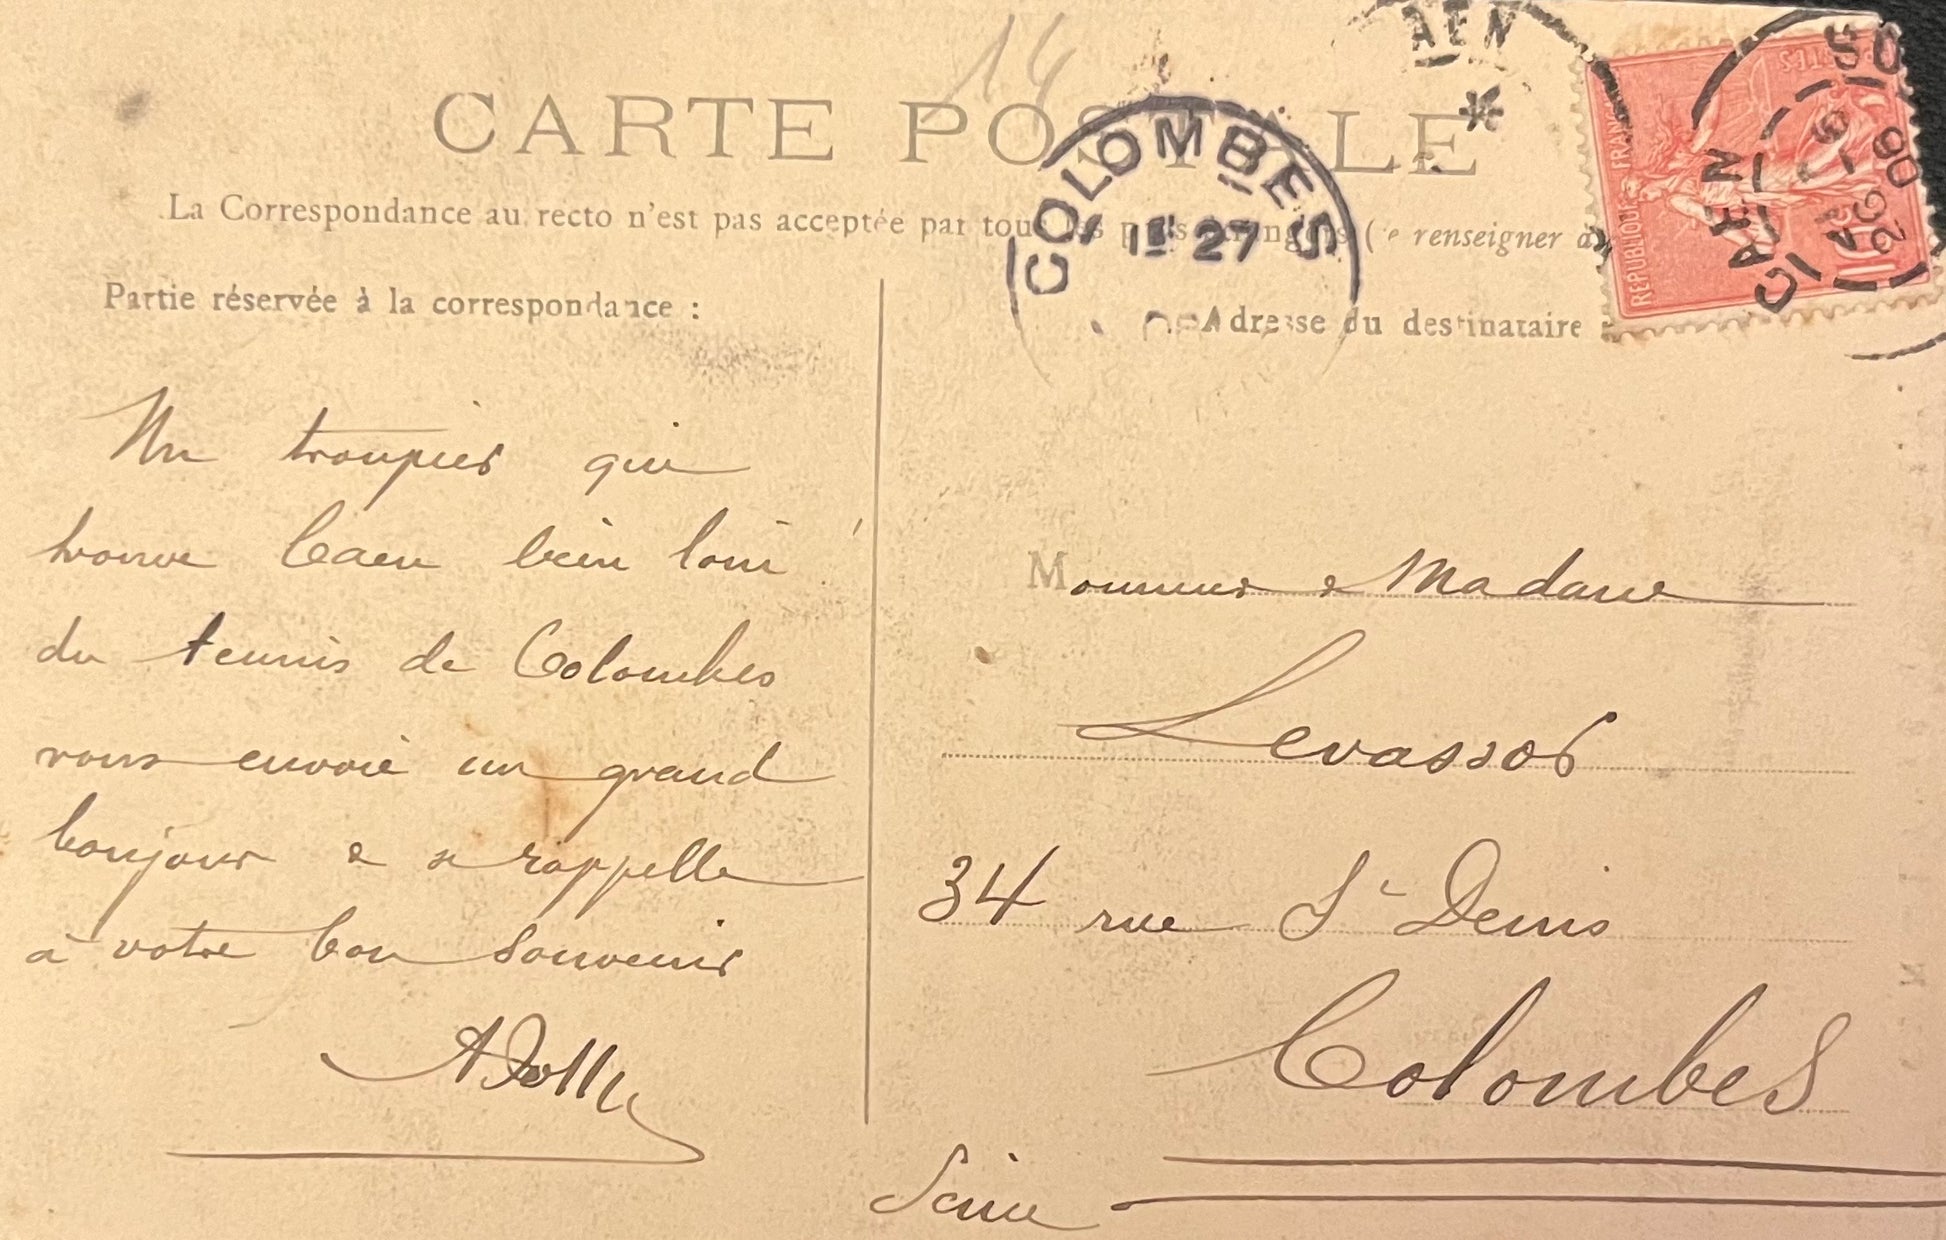 14
CARTE POSTALE
La Correspondance au recto n'est pas acceptée par tous les pays étrangers (Se renseigner à
Partie réservée à la correspondance :
Adresse du destinataire
COLOMBES
27
AEN
REPUBLIQUE FRANÇ
POSTES
10c
CAEN
26
06
Un troupier qui
trouve Caen bien loin
du tennis de Colombes
vous envoie un grand
bonjour & se rappelle
à votre bon souvenir
Monsieur & Madame
Levassor
34 rue St Denis
Colombes
Seine